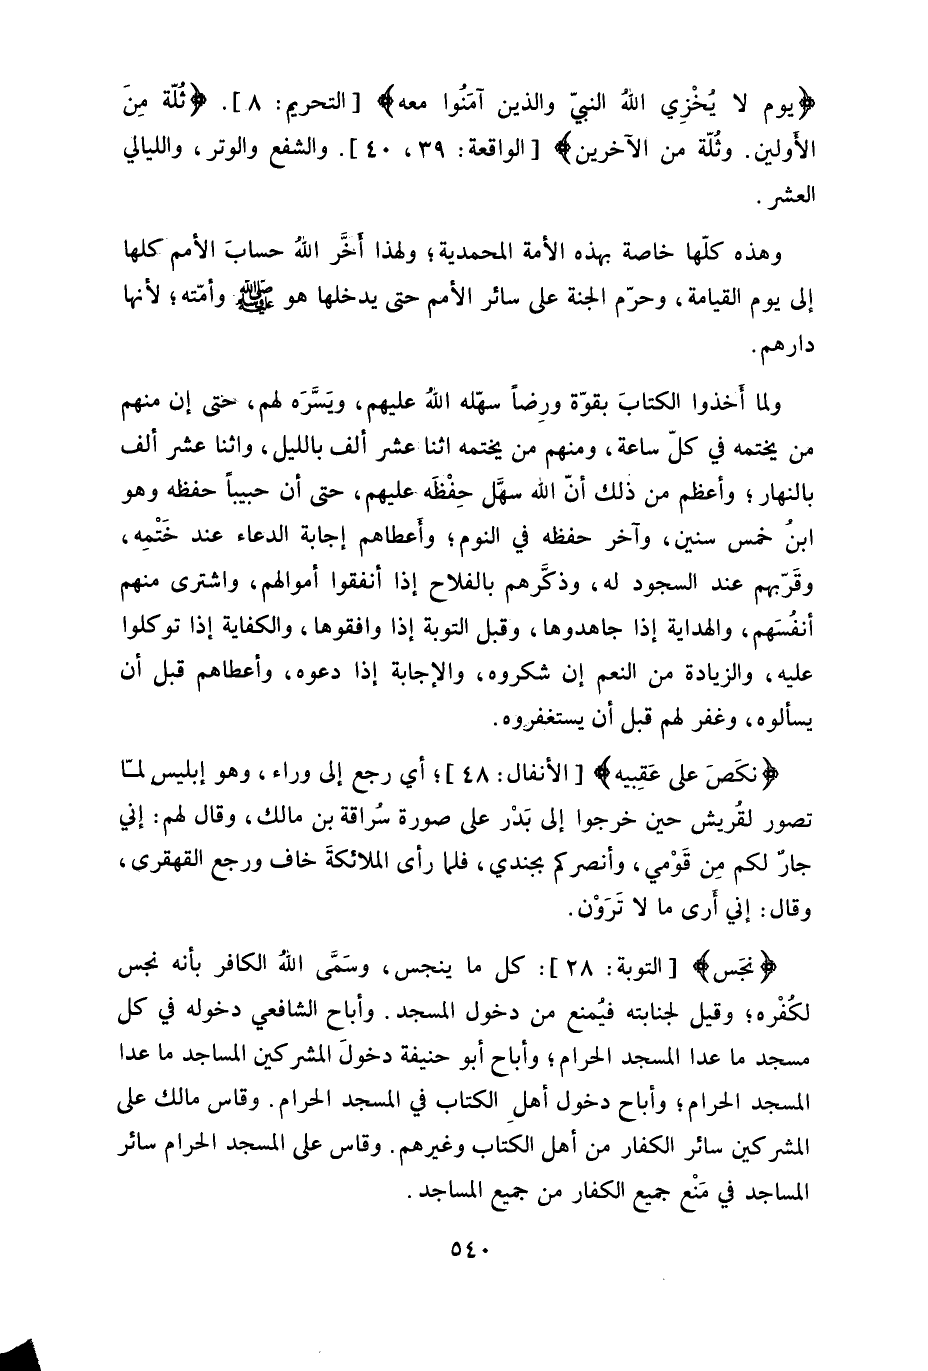 ﴿يوم لا يُخْزِي اللهُ النبيّ والذين آمَنُوا معه﴾ [التحريم: ٨]. ﴿ثُلّة مِنَ
الأَولين. وثُلّة من الآخرين﴾ [الواقعة: ٣٩، ٤٠]. والشفع والوتر، والليالي
العشر.
وهذه كلّها خاصة بهذه الأمة المحمدية؛ ولهذا أَخَّر اللهُ حسابَ الأمم كلها
إلى يوم القيامة، وحرّم الجنة على سائر الأمم حتى يدخلها هو ﷺ وأمّته؛ لأنها
دارهم.
ولما أَخذوا الكتابَ بقوّة ورِضاً سهّله اللهُ عليهم، ويَسَّرَه لهم، حتى إن منهم
من يختمه في كلّ ساعة، ومنهم من يختمه اثنا عشر ألف بالليل، واثنا عشر ألف
بالنهار؛ وأعظم من ذلك أنّ الله سهَّل حِفْظَه عليهم، حتى أن حبيباً حفظه وهو
ابنُ خمس سنين، وآخر حفظه في النوم؛ وأَعطاهم إجابة الدعاء عند خَتْمِه،
وقَرّبهم عند السجود له، وذكَّرهم بالفلاح إذا أنفقوا أموالهم، واشترى منهم
أنفُسَهم، والهداية إذا جاهدوها، وقبل التوبة إذا وافقوها، والكفاية إذا توكلوا
عليه، والزيادة من النعم إن شكروه، والإجابة إذا دعوه، وأعطاهم قبل أن
يسألوه، وغفر لهم قبل أن يستغفروه.
﴿نكَصَ على عَقِبيه﴾ [الأنفال: ٤٨]؛ أي رجع إلى وراء، وهو إبليس لمّا
تصور لقُريش حين خرجوا إلى بَدْر على صورة سُراقة بن مالك، وقال لهم: إني
جارٌ لكم مِن قَوْمي، وأنصركم بجندي، فلما رأى الملائكةَ خاف ورجع القهقرى،
وقال: إني أَرى ما لا تَرَوْن.
﴿نجَس﴾ [التوبة: ٢٨]: كل ما ينجس، وسَمَّى اللهُ الكافر بأنه نجس
لكُفْره؛ وقيل لجنابته فيُمنع من دخول المسجد. وأباح الشافعي دخوله في كل
مسجد ما عدا المسجد الحرام؛ وأباح أبو حنيفة دخولَ المشركين المساجد ما عدا
المسجد الحرام؛ وأباح دخول أهلِ الكتاب في المسجد الحرام. وقاس مالك على
المشركين سائر الكفار من أهل الكتاب وغيرهم. وقاس على المسجد الحرام سائر
المساجد في مَنْع جميع الكفار من جميع المساجد.
٥٤٠